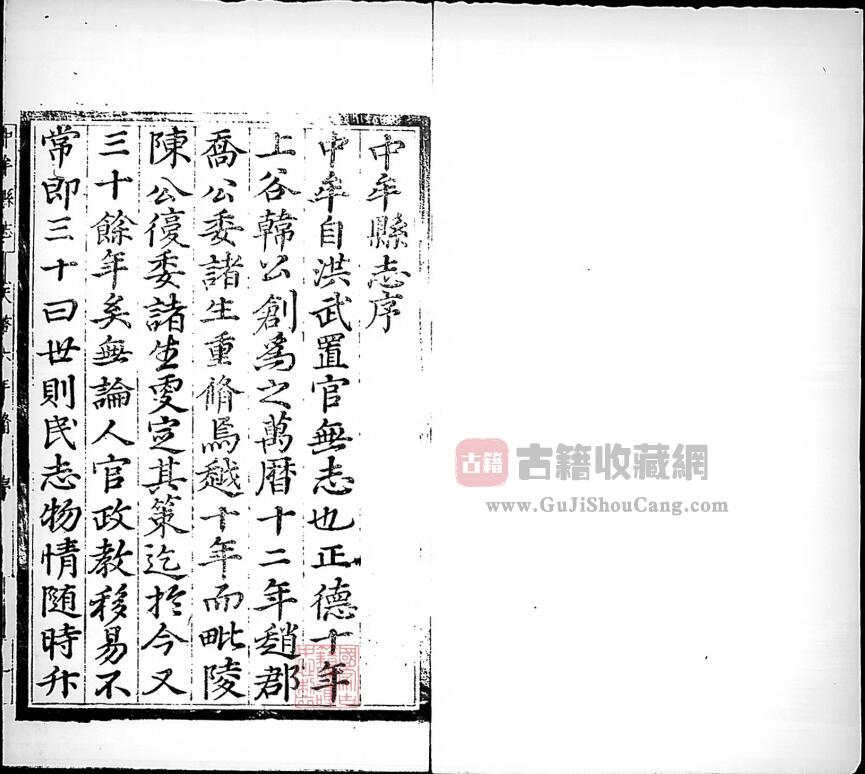 中牟縣志序
中牟自洪武置官無志也正德十年
上谷韓公創爲之萬曆十二年趙郡
喬公委諸生重脩焉越十年而毗陵
陳公復委諸生更定其策迄於今又
三十餘年矣無論人官政教移易不
常即三十曰世則民志物情随時升
中牟縣志
古籍
古籍收藏網
www.GuJiShouCang.com